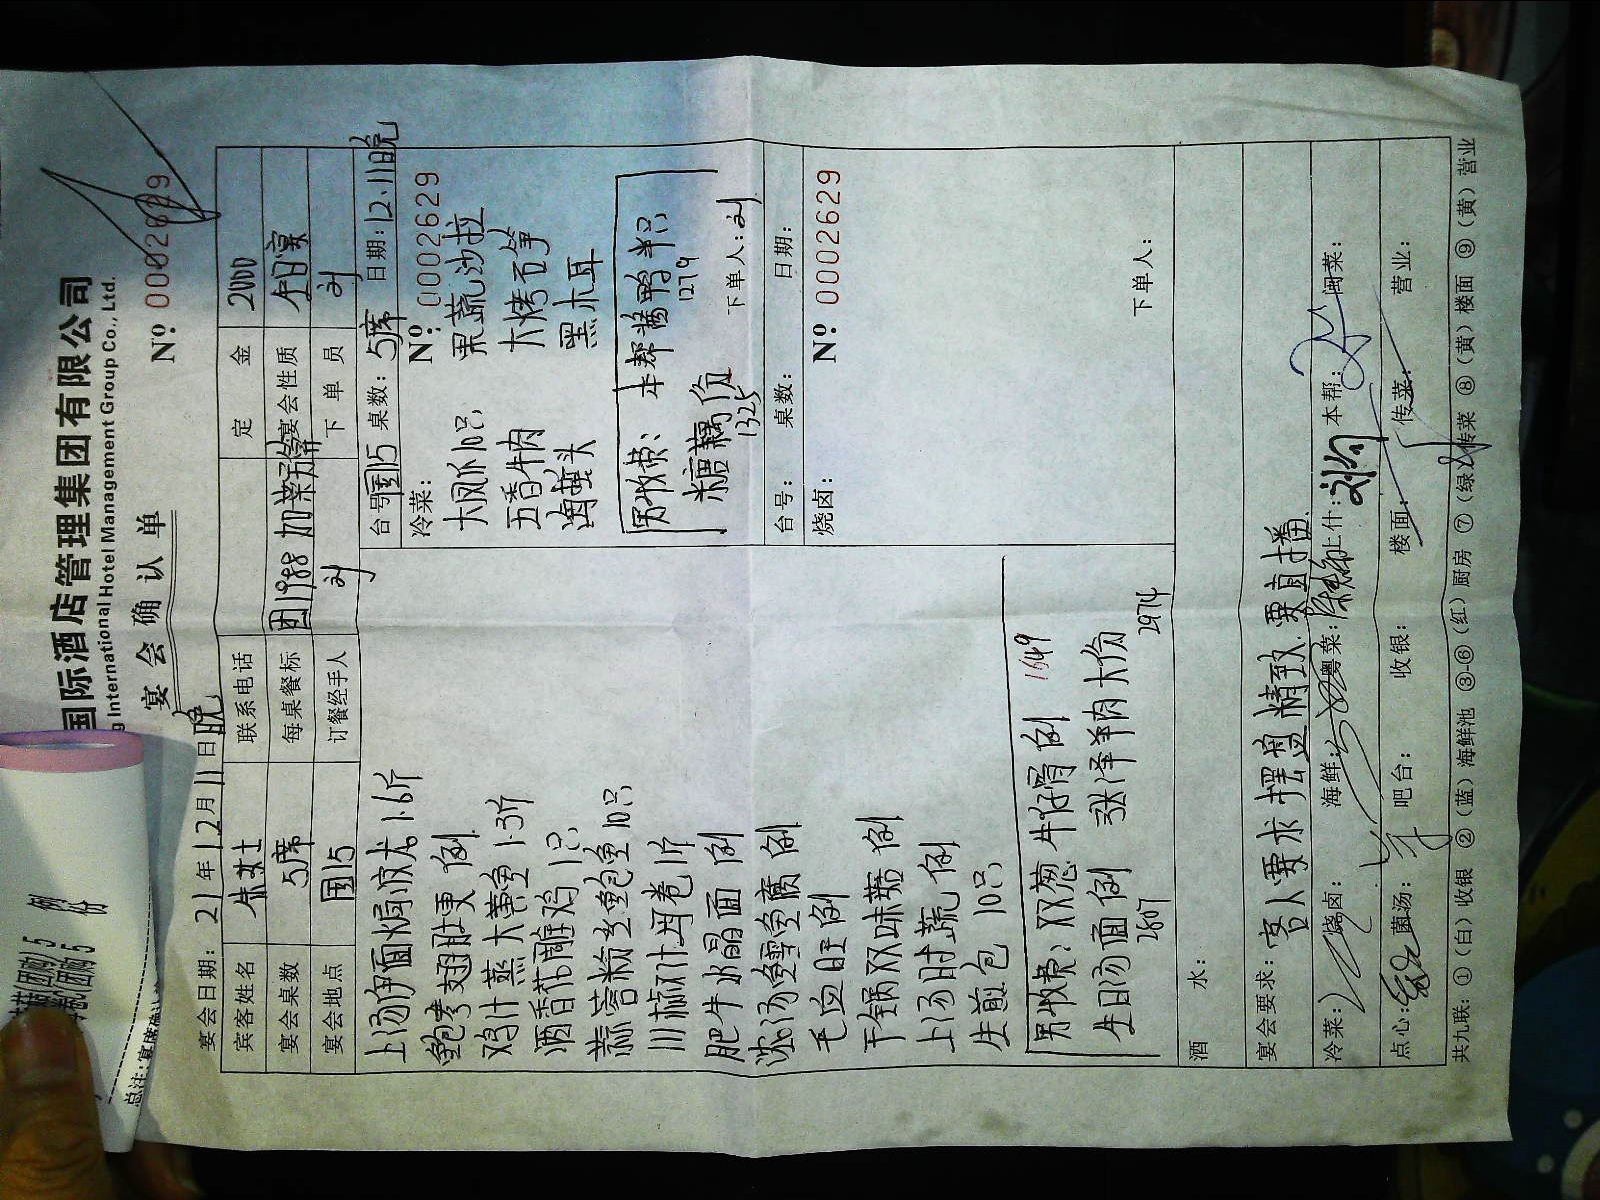 国际酒店管理集团有限公司
g International Hotel Management Group Co., Ltd.
宴会确认单
Nº 0002629
宴会日期：21年12月11日晚
宾客姓名 女士 联系电话 定金 2000
宴会桌数 5席 每桌餐标 团1988 加菜另算 宴会性质 生日宴
宴会地点 国15 订餐经手人 刘 下单员 刘
台号：国15 桌数：5席 日期：12.11晚
冷菜： Nº: 0002629
大凤爪10只 果蔬沙拉
五香牛肉 大烤石笋
海蜇头 黑木耳
另收费：本帮酱鸭半只
1279
糖藕份
1325
下单人：刘
台号： 桌数： 日期：
烧卤： Nº 0002629
下单人：
上汤伊面焗波龙1.6斤
翅肚更 例
鸡汁蒸大黄鱼1.3斤
酒香花雕鸡1只
蒜蓉粉丝鲍鱼10只
肥牛水晶面例
浓汤鱼腐例
毛血旺例
干锅双味菇例
上汤时蔬例
生煎包10只
另收费：双葱牛仔骨例 1649
生日汤面例 张泽羊肉大份
2607 2974
酒水：
宴会要求：客人要求摆盘精致.要直播
冷菜： 烧卤： 海鲜： 粤菜： 上什： 本帮： 闽菜：
点心： 菌汤： 吧台： 收银： 楼面： 传菜： 营业：
共九联：①（白）收银 ②（蓝）海鲜池 ③-⑥（红）厨房 ⑦（绿）传菜 ⑧（黄）楼面 ⑨（黄）营业